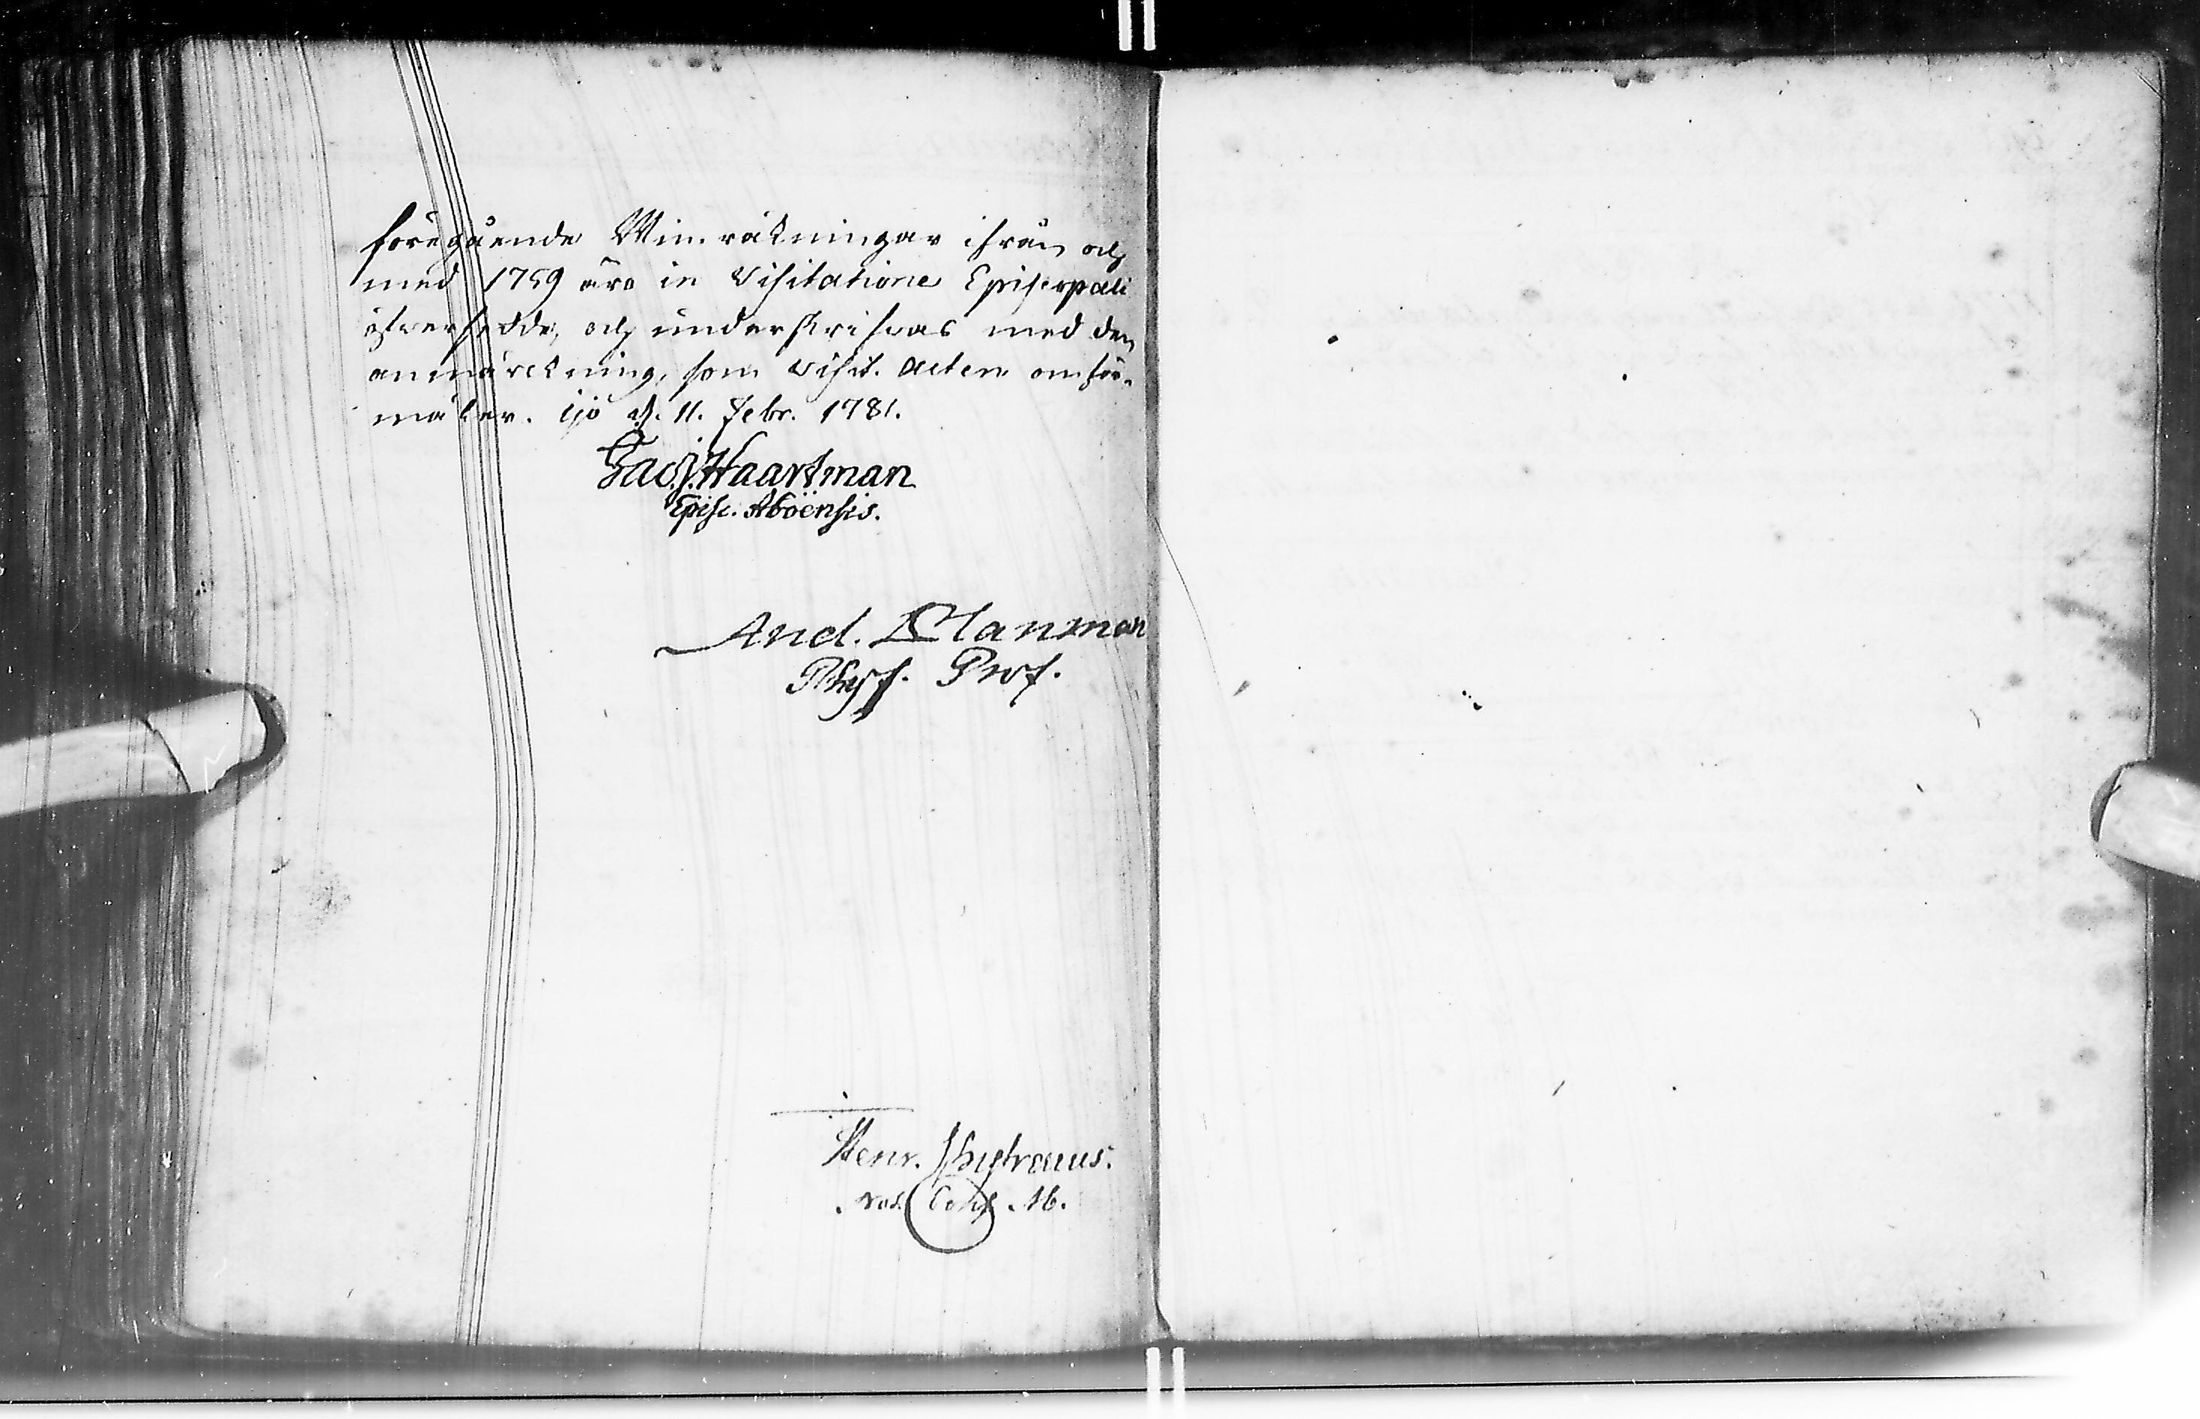 föregående Win räkningar ifrån och
med 1759 äro in Visitatione Episcopali
öfversedde, och underskrifvas med den
anmärckning, som Visit. Acten omför-
mäler. Ijo d. 11. Febr. 1781.
Jac. Haartman
Episc. Aboënsis.
And. Planman
Phys. Prof.
Henr. Chytræus.
Not. Cons. Ab.